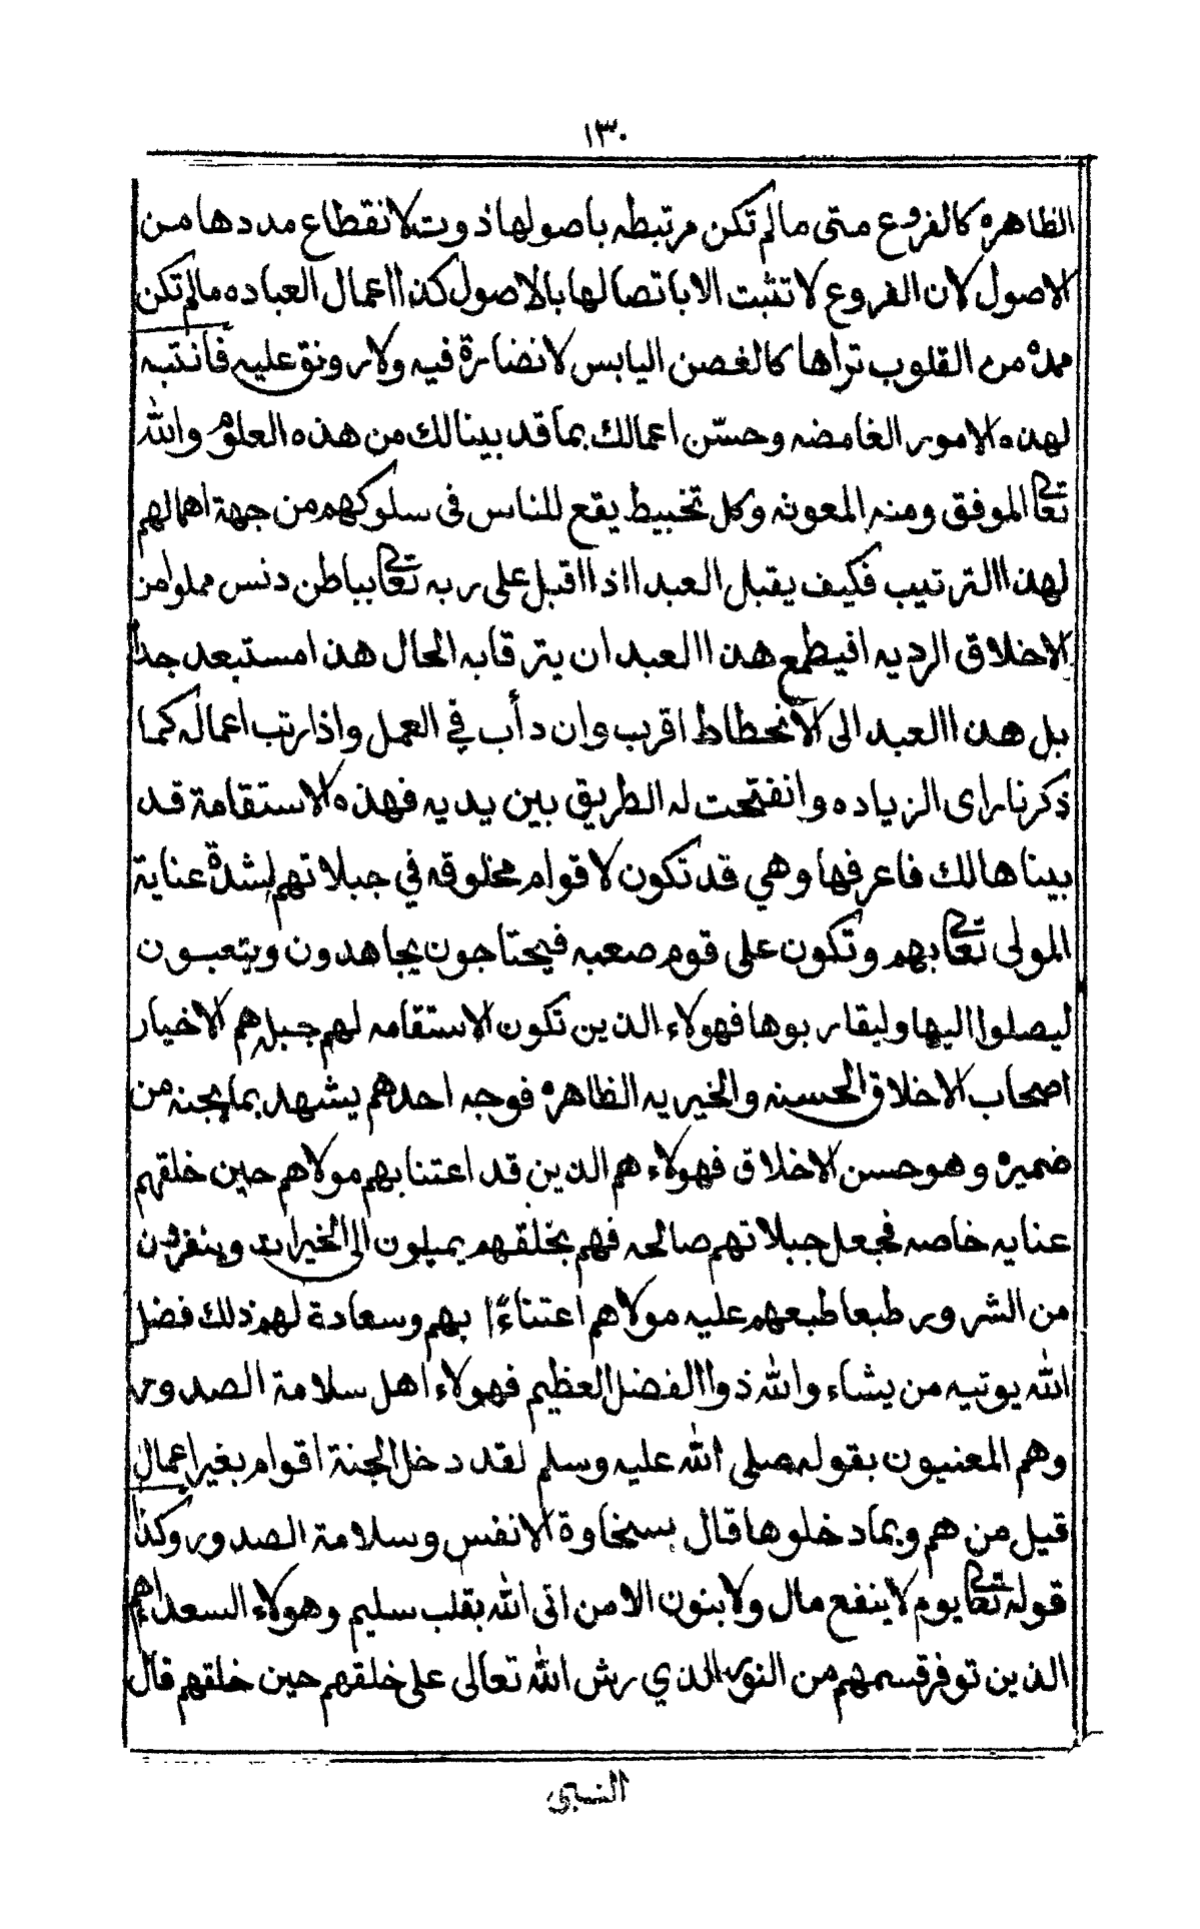 ١٣٠
الظاهره كالفروع متى مالم تكن مرتبطه باصولها ذوت لانقطاع مددها من
الاصول لان الفروع لا تثبت الا باتصالها بالاصول كذا اعمال العباده مالم تكن
ممدة من القلوب تراها كالغصن اليابس لا نضارة فيه ولا رونق عليه فانتبه
لهذه الامور الغامضه وحسّن اعمالك بما قد بينا لك من هذه العلوم والله
تعالى الموفق ومنه المعونه وكل تخبيط يقع للناس فى سلوكهم من جهة اهمالهم
لهذا الترتيب فكيف يقبل العبد اذا اقبل على ربه تعالى بباطن دنس مملو من
الاخلاق الرديه افيطمع هذا العبد ان يترقا به الحال هذا مستبعد جدا
بل هذا العبد الى الانحطاط اقرب وان دأب في العمل واذا رتب اعماله كما
ذكرنا راى الزياده وانفتحت له الطريق بين يديه فهذه الاستقامة قد
بيناها لك فاعرفها وهي قد تكون لاقوام مخلوقه في جبلاتهم لشدة عناية
المولى تعالى بهم وتكون على قوم صعبه فيحتاجون يجاهدون ويتعبون
ليصلوا اليها وليقاربوها فهولاء الذين تكون الاستقامه لهم جبله هم الاخيار
اصحاب الاخلاق الحسنه والخيريه الظاهره فوجه احدهم يشهد بما يجنه من
ضميره وهو حسن الاخلاق فهولاء هم الذين قد اعتنا بهم مولاهم حين خلقهم
عنايه خاصه فجعل جبلاتهم صالحه فهم بخلقهم يميلون الى الخيرات وينفرون
من الشرور طبعا طبعهم عليه مولاهم اعتناءً ا بهم وسعادة لهم ذلك فضل
الله يوتيه من يشاء والله ذوا الفضل العظيم فهولاء اهل سلامة الصدور
وهم المعنيون بقوله صلى الله عليه وسلم لقد دخل الجنة اقوام بغير اعمال
قيل من هم وبماد خلوها قال بسخاوة الانفس وسلامة الصدور وكذا
قوله تعالى يوم لا ينفع مال ولا بنون الا من اتى الله بقلب سليم وهولاء السعداء هم
الذين توفر قسمهم من النور الذي رش الله تعالى على خلقهم حين خلقهم قال
النبى